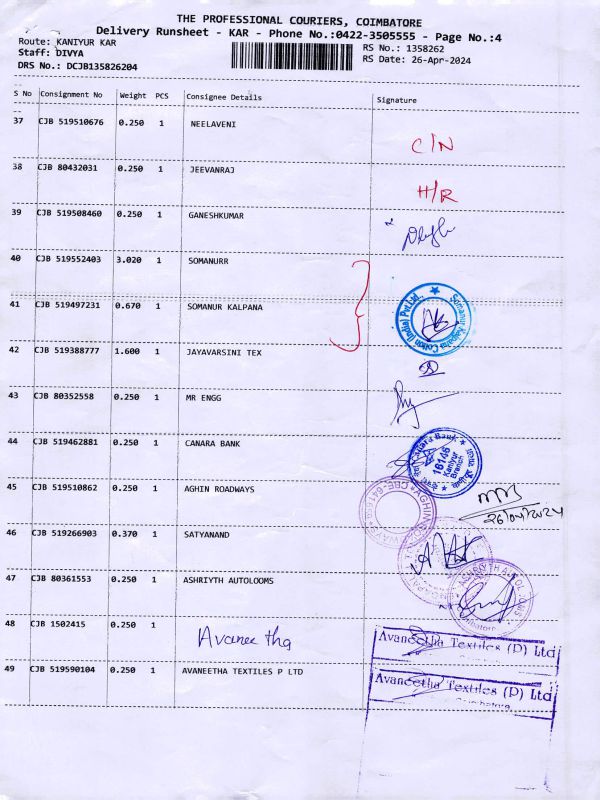 THE PROFESSIONAL COURIERS, COIMBATORE
Delivery Runsheet - KAR - Phone No.:0422-3505555 - Page No.:4
Route: KANIYUR KAR
RS No.: 1358262
Staff: DIVYA
RS Date: 26-Apr-2024
DRS No.: DCJB135826204
S No Consignment No Weight PCS Consignee Details Signature
37 CJB 519510676 0.250 1 NEELAVENI
C/N
38 CJB 80432031 0.250 1 JEEVANRAJ
H/R
39 CJB 519508460 0.250 1 GANESHKUMAR
40 CJB 519552403 3.020 1 SOMANURR
41 CJB 519497231 0.670 1 SOMANUR KALPANA
Somanur Kalpana Cotton (India) Pvt.Ltd.,
42 CJB 519388777 1.600 1 JAYAVARSINI TEX
43 CJB 80352558 0.250 1 MR ENGG
44 CJB 519462881 0.250 1 CANARA BANK
Canara Bank
16146
Kaniyur
Branch
45 CJB 519510862 0.250 1 AGHIN ROADWAYS
26/04/2024
46 CJB 519266903 0.370 1 SATYANAND
47 CJB 80361553 0.250 1 ASHRIYTH AUTOLOOMS
ASHRIYTH AUTOLOOMS
48 CJB 1502415 0.250 1
Avaneetha
Avaneetha Textiles (P) Ltd
49 CJB 519590104 0.250 1 AVANEETHA TEXTILES P LTD
Avaneetha Textiles (P) Ltd
Coimbatore